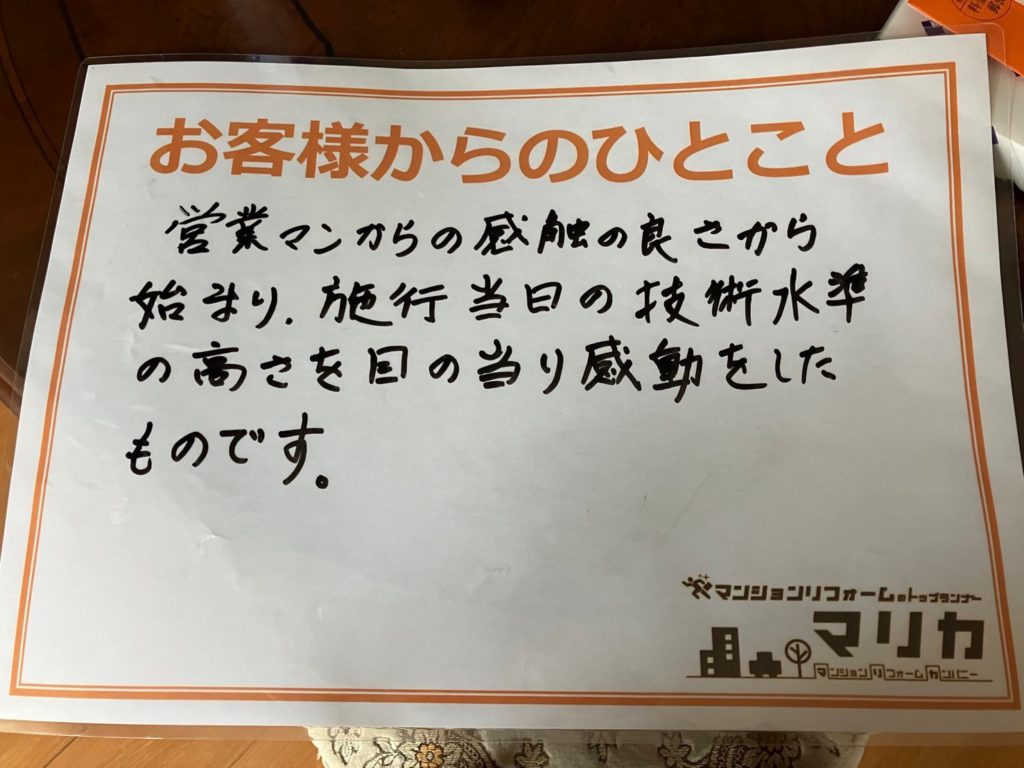 お客様からのひとこと
営業マンからの感触の良さから
始まり、施行当日の技術水準
の高さを目の当り感動をした
ものです。
マンションリフォームのトップランナー
マリカ
マンションリフォームカンパニー